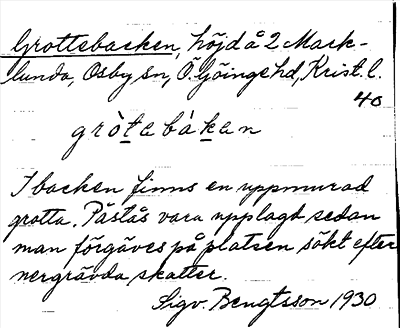 Grottebacken, höjd å 2 Mark-
lunda, Osby sn, Ö. Göinge hd, Krist. l.
40
gròtabàkan
I backen finns en uppmurad
grotta. Påstås vara upplagd sedan
man förgäves på platsen sökt efter
nergrävda skatter.
Sigv. Bengtsson 1930